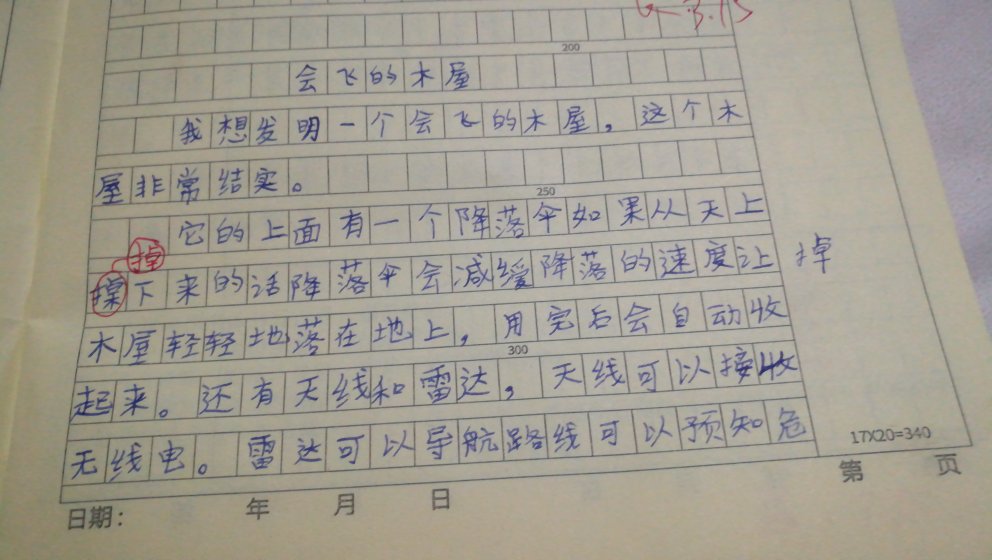 3.15
200
会飞的木屋
我想发明一个会飞的木屋，这个木
屋非常结实。
250
它的上面有一个降落伞如果从天上
掉
下来的话降落伞会减缓降落的速度让 掉
木屋轻轻地落在地上，用完后会自动收
300
起来。还有天线和雷达，天线可以接收
无线电。雷达可以导航路线可以预知危
17X20=340
日期： 年 月 日 第 页